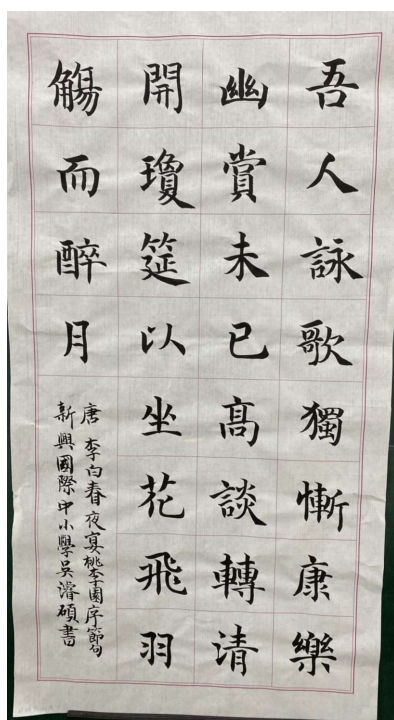 吾人詠歌獨慚康樂
幽賞未已高談轉清
開瓊筵以坐花飛羽
觴而醉月
唐李白春夜宴桃李園序節句
新興國際中小學吳濬碩書